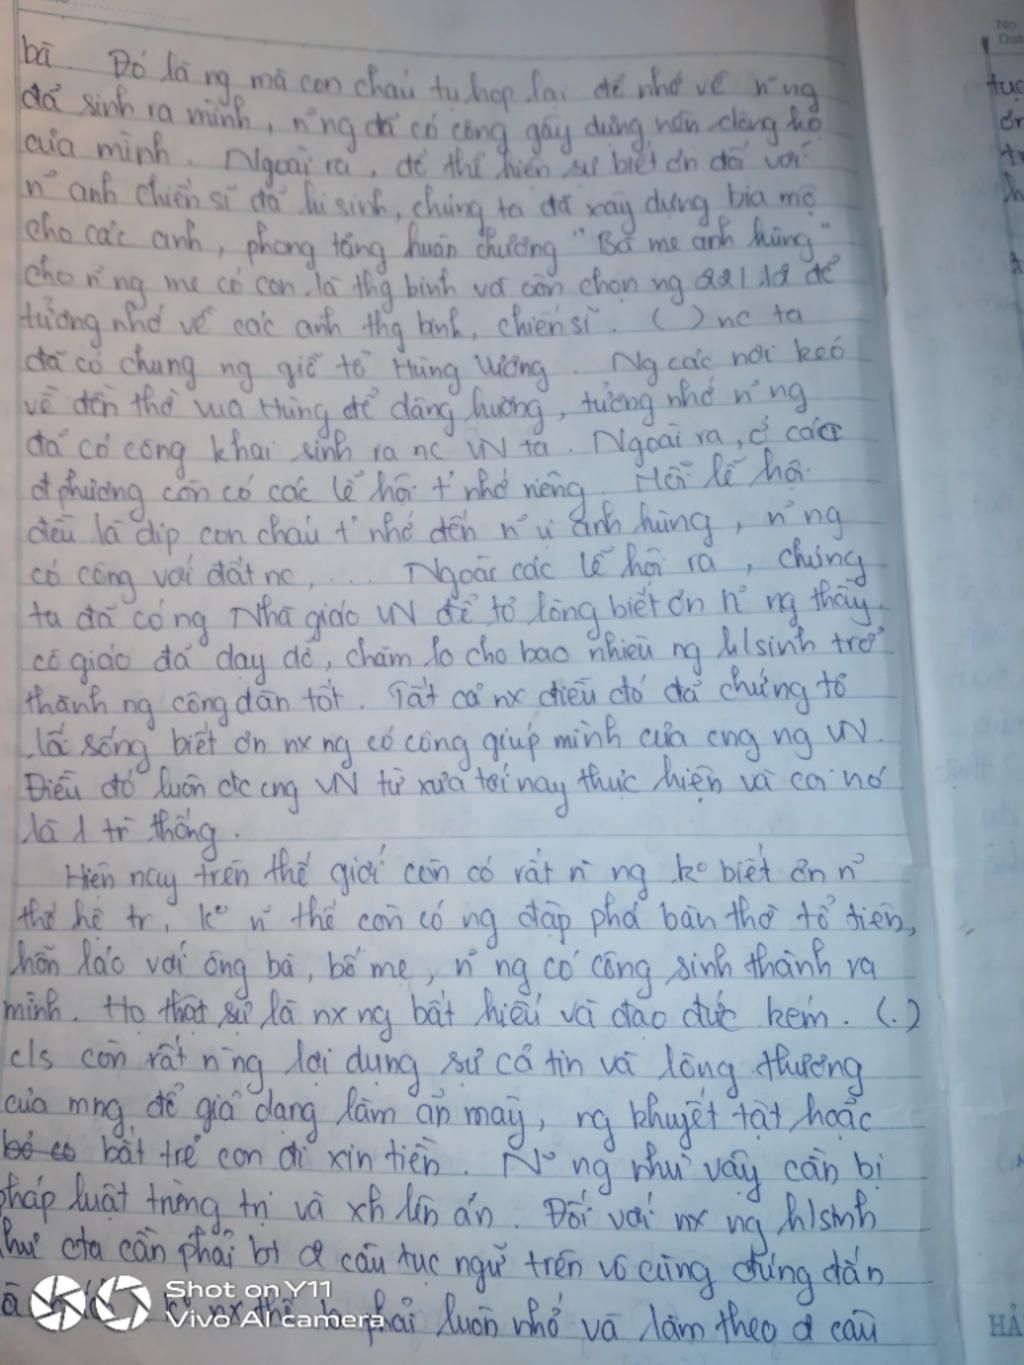 bà. Đó là ng mà con cháu tụ họp lại để nhớ về n~ ng
đã sinh ra mình, n~ ng đã có công gây dựng nên dòng họ
của mình. Ngoài ra, để thể hiện sự biết ơn đối với
n~ anh chiến sĩ đã hi sinh, chúng ta đã xây dựng bia mộ
cho các anh, phong tặng huân chương "Bà mẹ anh hùng"
cho n~ ng mẹ có con là thg binh và còn chọn ng 22/12 để
tưởng nhớ về các anh thg binh, chiến sĩ. ( ) nc ta
đã có chung ng giỗ tổ Hùng Vương. Ng các nơi kéo
về đền thờ vua Hùng để dâng hương, tưởng nhớ n~ ng
đã có công khai sinh ra nc VN ta. Ngoài ra, ở các
đ phương còn có các lễ hội t' nhớ riêng. Mỗi lễ hội
đều là dịp con cháu t' nhớ đến n~ vị anh hùng, n~ ng
có công với đất nc, ... Ngoài các lễ hội ra, chúng
ta đã có ng Nhà giáo VN để tỏ lòng biết ơn n~ ng thầy
cô giáo đã dạy dỗ, chăm lo cho bao nhiêu ng h/sinh trở
thành ng công dân tốt. Tất cả nx điều đó đã chứng tỏ
lối sống biết ơn nx ng có công giúp mình của cng ng VN.
Điều đó luôn đc cng VN từ xưa tới nay thực hiện và coi nó
là 1 tr` thống.
Hiện nay trên thế giới còn có rất n` ng ko biết ơn n~
thế hệ tr', ko n~ thế còn có ng đập phá bàn thờ tổ tiên,
hỗn láo với ông bà, bố mẹ, n~ ng có công sinh thành ra
mình. Họ thật sự là nx ng bất hiếu và đạo đức kém. (.)
c/s còn rất n` ng lợi dụng sự cả tin và lòng thương
của mng để giả dạng làm ăn mày, ng khuyết tật hoặc
bắt trẻ con đi xin tiền. N~ ng như vậy cần bị
pháp luật trừng trị và xh lên án. Đối với nx ng h/sinh
như cta cần phải bt đc câu tục ngữ trên vô cùng đúng đắn
nx thế phải luôn nhớ và làm theo đc câu
Shot on Y11
Vivo AI camera
No
Dat
tục
HẢ